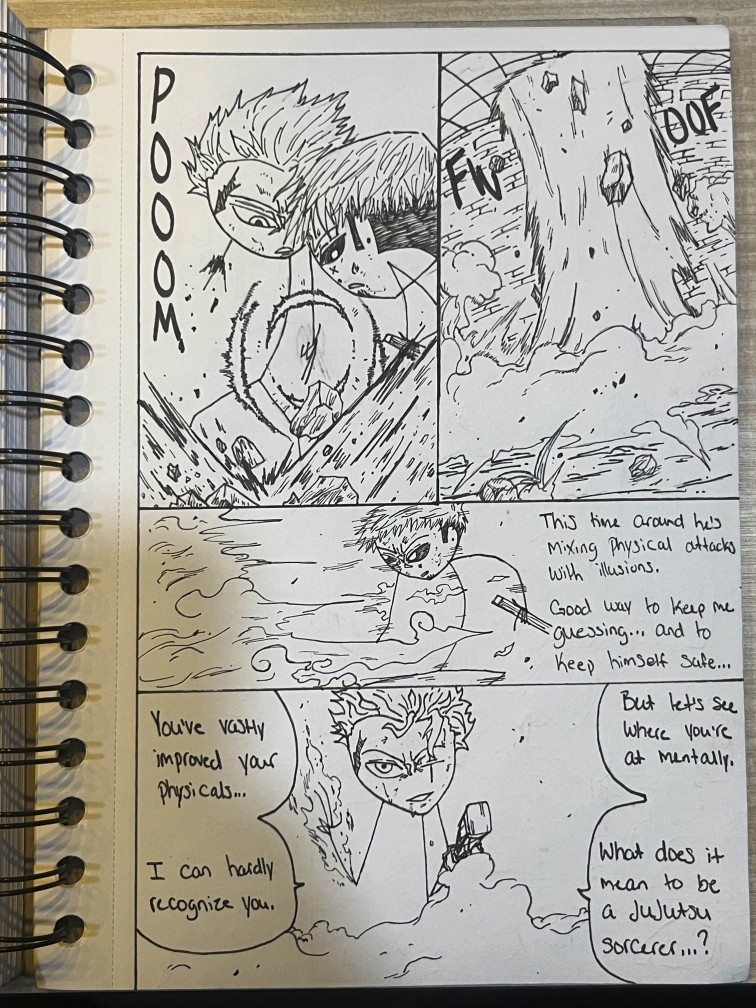 POOOM
FWOOF
This time around he's
mixing physical attacks
with illusions.
Good way to keep me
guessing... and to
keep himself safe...
You've vastly
improved your
physicals...
I can hardly
recognize you.
But let's see
where you're
at mentally.
What does it
mean to be
a Jujutsu
sorcerer...?